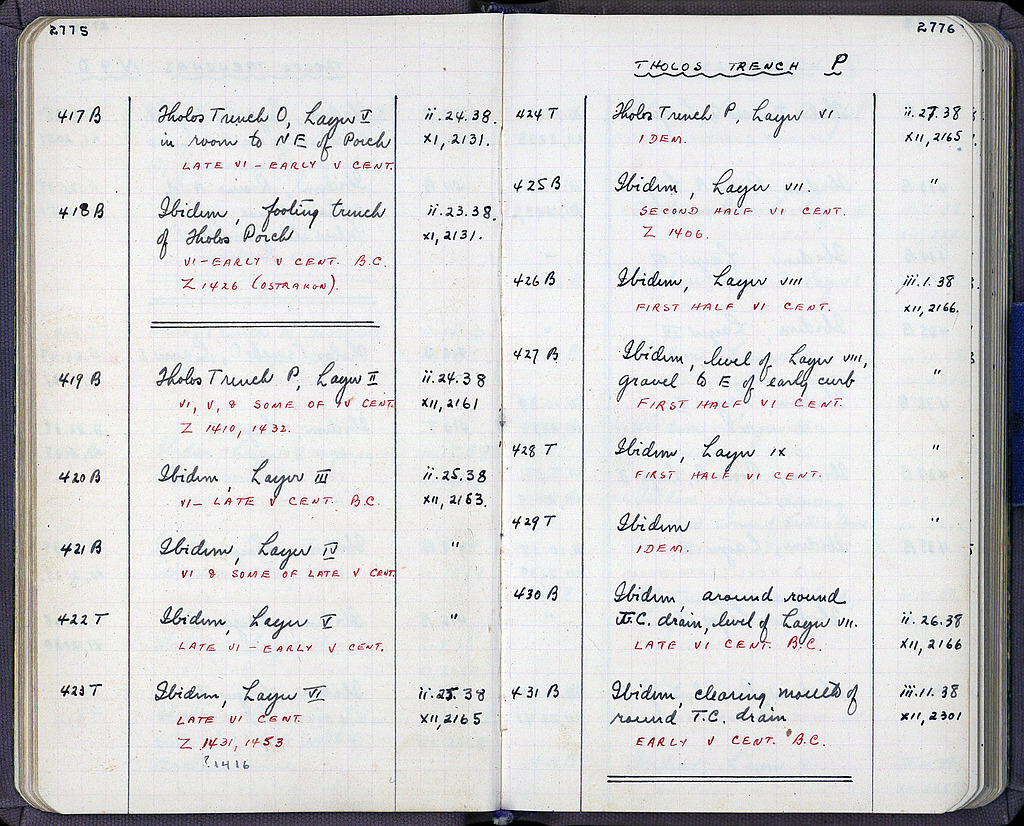 2775
417 B Tholos Trench O, Layer V ii.24.38.
in room to NE of Porch XI, 2131.
LATE VI – EARLY V CENT.
418 B Ibidem, footing trench ii.23.38.
of Tholos Porch XI, 2131.
VI – EARLY V CENT. B.C.
Z 1426 (OSTRAKON).
419 B Tholos Trench P, Layer II ii.24.38
VI, V, & SOME OF IV CENT. XII, 2161
Z 1410, 1432.
420 B Ibidem, Layer III ii.25.38
VI – LATE V CENT. B.C. XII, 2163.
421 B Ibidem, Layer IV "
VI & SOME OF LATE V CENT.
422 T Ibidem, Layer V "
LATE VI – EARLY V CENT.
423 T Ibidem, Layer VI ii.25.38
LATE VI CENT. XII, 2165
Z 1431, 1453
?1416
2776
THOLOS TRENCH P
424 T Tholos Trench P, Layer VI ii.27.38
IDEM. XII, 2165
425 B Ibidem, Layer VII. "
SECOND HALF VI CENT.
Z 1406.
426 B Ibidem, Layer VIII iii.1.38
FIRST HALF VI CENT. XII, 2166.
427 B Ibidem, level of Layer VIII,
gravel to E of early curb "
FIRST HALF VI CENT.
428 T Ibidem, Layer IX "
FIRST HALF VI CENT.
429 T Ibidem "
IDEM.
430 B Ibidem, around round
T.C. drain, level of Layer VII. ii.26.38
LATE VI CENT. B.C. XII, 2166
431 B Ibidem, clearing mouth of iii.11.38
round T.C. drain XII, 2301
EARLY V CENT. B.C.